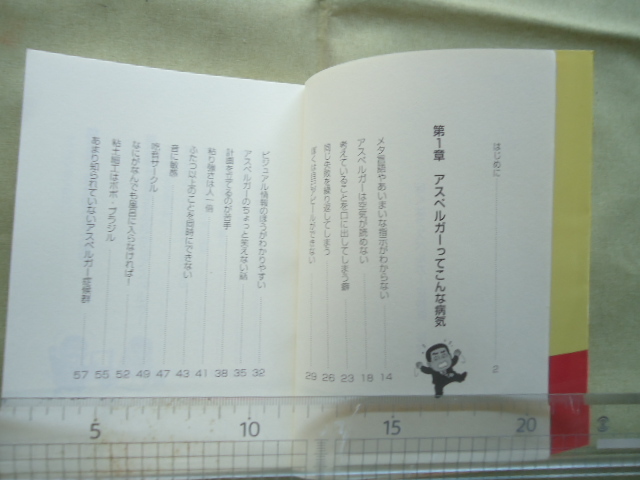 はじめに 2
第1章 アスペルガーってこんな病気
メタ言語やあいまいな指示がわからない 14
アスペルガーは空気が読めない 18
考えていることを口に出してしまう癖 23
同じ失敗を繰り返してしまう 26
ぼくは自己アピールができない 29
ビジュアル情報のほうがわかりやすい 32
アスペルガーのちょっと笑えない話 35
計画を立てるのが苦手 38
粘り強さは人一倍 41
ふたつ以上のことを同時にできない 43
音に敏感 47
吃音サークル 49
なにがなんでも風呂に入らなければ! 52
粘土細工はポポ・ブラジル 55
あまり知られていないアスペルガー症候群 57
5 10 15 20